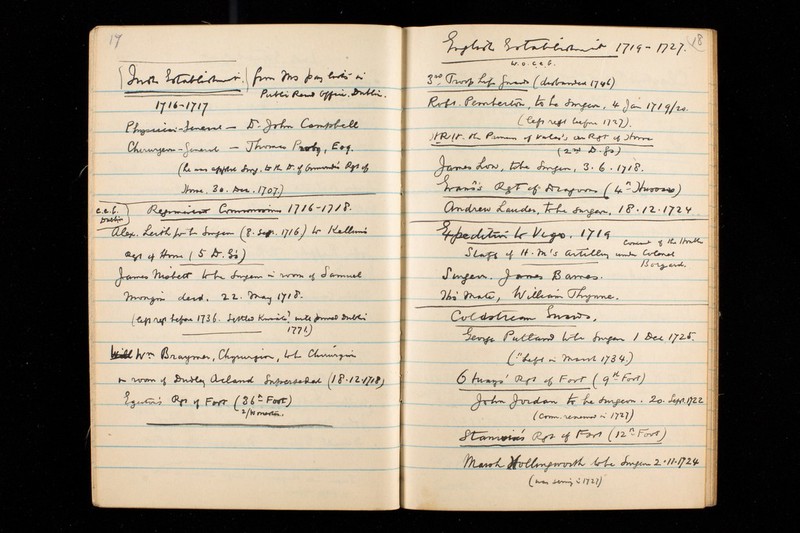 17
Irish Establishment. from MS pay lists in
Public Record Office. Dublin.
1716-1717
Physician-General — Dr. John Campbell
Chirurgeon-General — Thomas Proby, Esq.
(he was apptd Surg. to the D. of Ormond's Rgt of
Horse. 30. Dec. 1707)
Dublin
Regimental Commissions 1716-1718.
Alex. Leith to be Surgeon (8. Sep. 1716) to Kellum's
Rgt of Horse (5 D. Gs)
James Nisbett to be Surgeon in room of Samuel
decd. 22. May 1718.
(left regt before 1736. Settled
1771)
Wm Braymer, Chyrurgion, to be Chirurgin
in room of Dudley Acland Superseded (18.12.1718)
Egerton's Rgt of Foot (36th Foot)
2/Worcester.
18
English Establishment 1719-1727.
3rd Troop Life Guards (disbanded 1746)
Robt. Pemberton, to be Surgeon, 4 Jan 1719/20.
(left regt before 1727).
H.R.H. the Princess of Wales's own Rgt of Horse
(2nd D. Gs)
James Low, to be Surgeon, 3.6.1718.
Evans's Rgt of Dragoons (4th Hussars)
Andrew Lauder, to be Surgeon, 18.12.1724.
Expedition to Vigo. 1719
Staff of H.M's Artillery under Colonel
Borgard.
Surgeon. James Barnes.
His Mate, William Thynne.
Coldstream Guards.
George Putland to be Surgeon 1 Dec 1725.
("Left in March 1734.)
Otway's Rgt of Foot (9th Foot)
John Jordan to be Surgeon. 20. Sept. 1722
(Comm. renewed in 1727)
Stanwix's Rgt of Foot (12th Foot)
Marsh Hollingworth to be Surgeon 2.11.1724
(was serving in 1727)